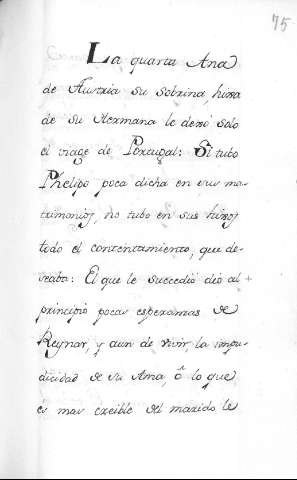 75
La quarta Ana
de Austria su sobrina, hixa
de su Hermana le dexó solo
el viage de Portugal: Si tubo
Phelipo poca dicha en sus ma-
trimonios, no tubo en sus hixos
todo el contentamiento, que de-
seaba: El que le succedió dió al
principio pocas esperanzas de
Reynar, y aun de vivir, la impu-
dicidad de su Ama, ó lo que
es mas creible del marido le